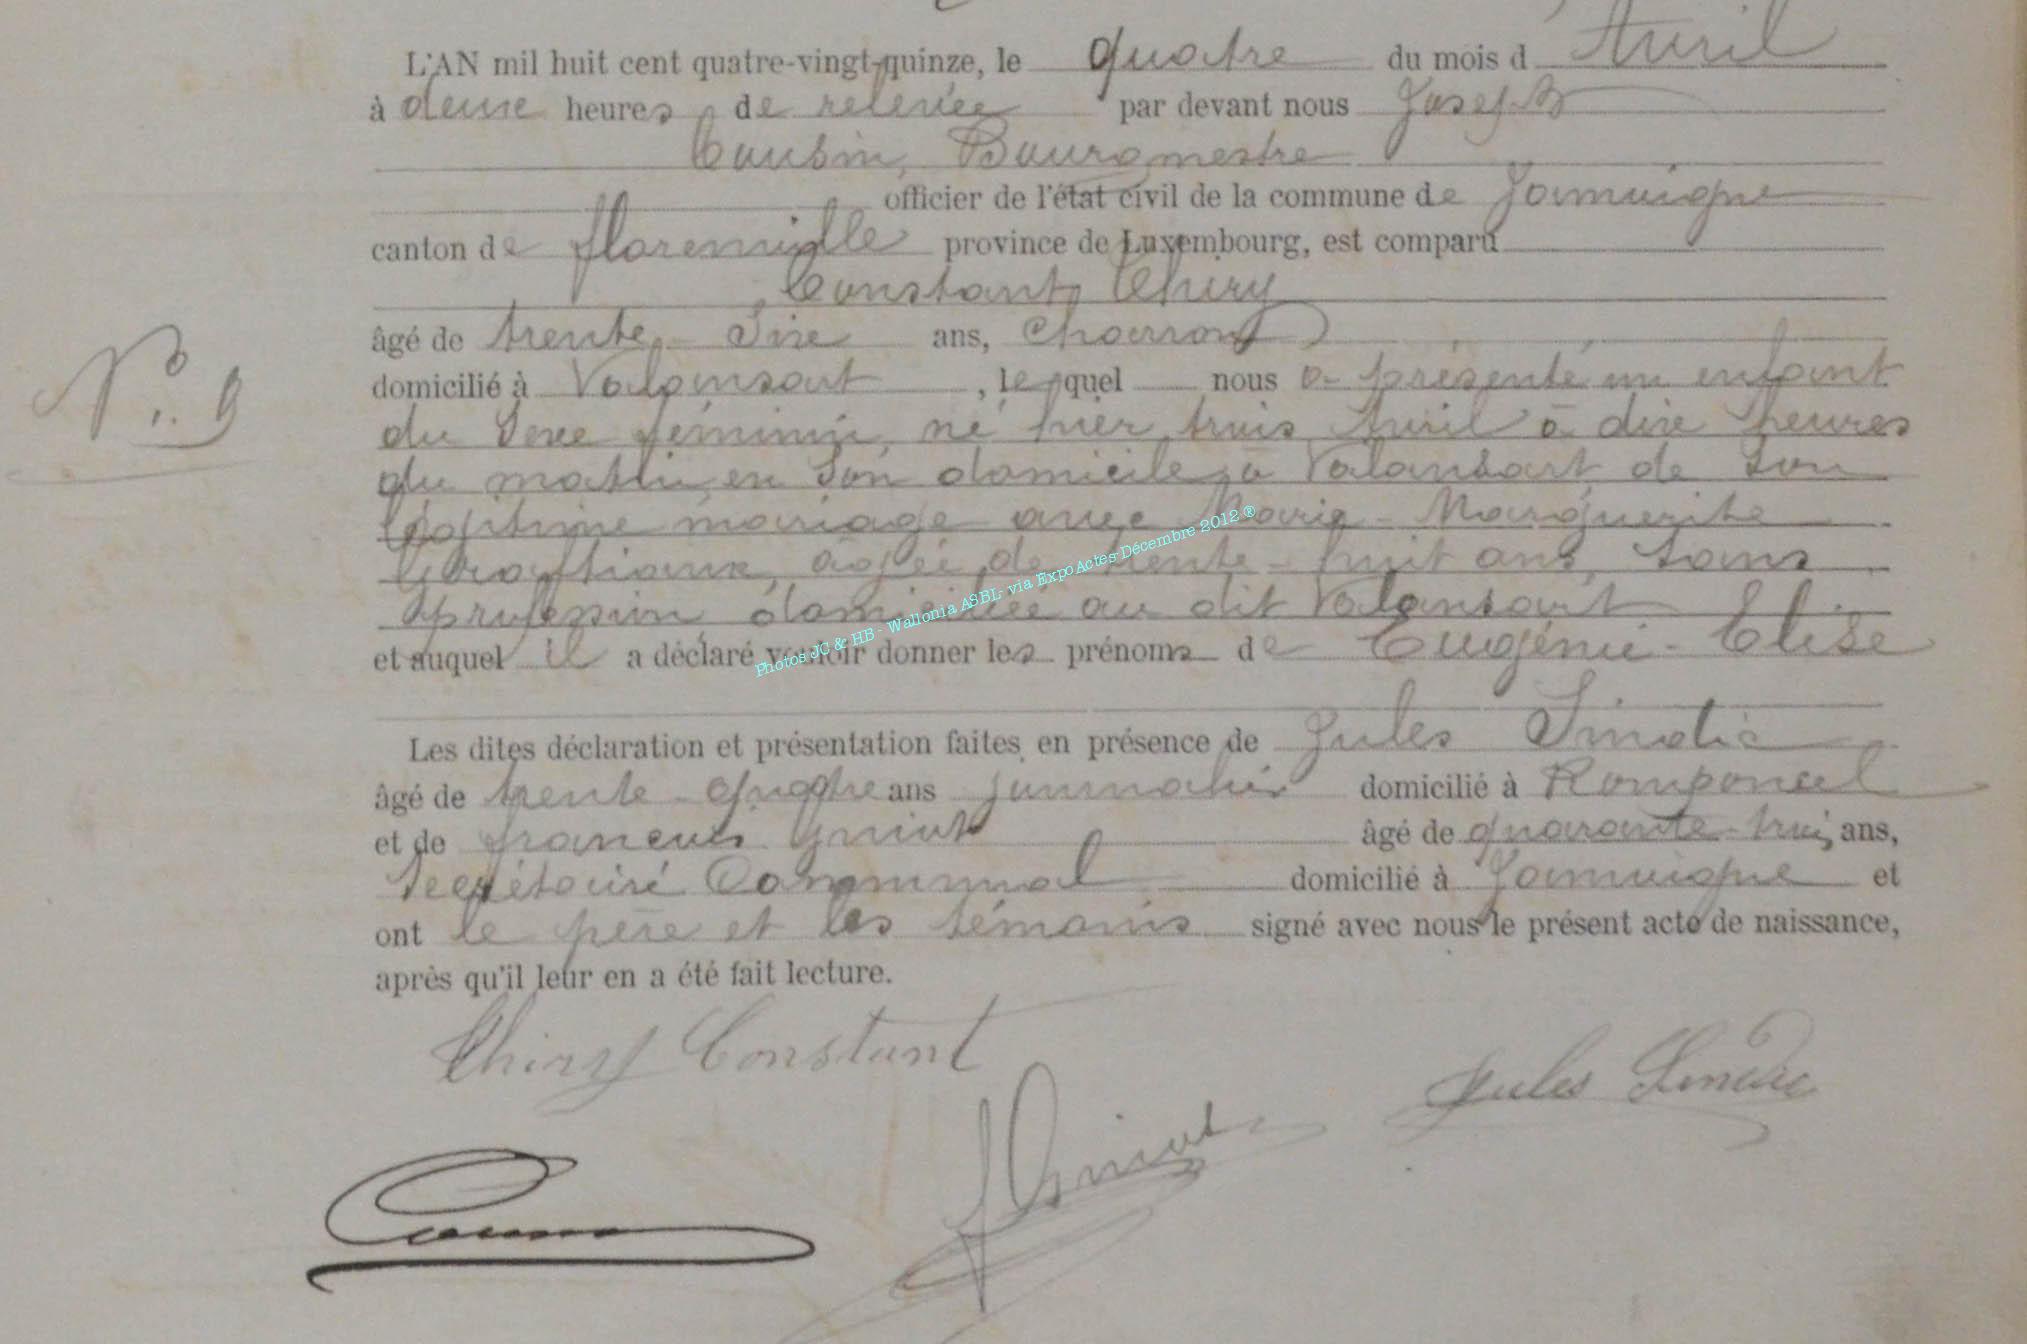 L'AN mil huit cent quatre-vingt-quinze, le quatre du mois d Avril
à deux heures de relevée par devant nous Joseph
Bourgmestre
officier de l'état civil de la commune de Jamoigne
canton de florenville province de Luxembourg, est comparu
Constant Thiry
âgé de trente-Six ans, Charron
domicilié à Valansart, lequel nous a présenté un enfant
du Sexe féminin, né hier trois Avril à dix heures
du matin, en Son domicile à Valansart de Son
légitime mariage avec Marie-Marguerite
âgée de trente-huit ans, Sans
profession domiciliée au dit Valansart
et auquel il a déclaré vouloir donner les prénoms de Eugénie-Elise
Les dites déclaration et présentation faites en présence de Jules
âgé de trente-quatre ans journalier domicilié à Romponcel
et de françois Guiot âgé de quarante-trois ans,
Secrétaire Communal domicilié à Jamoigne et
ont le père et les témoins signé avec nous le présent acte de naissance,
après qu'il leur en a été fait lecture.
N° 9
Photos JC & HB - Wallonia ASBL - via ExpoActes-Décembre 2012 ®
Thiry Constant
Jules
Guiot